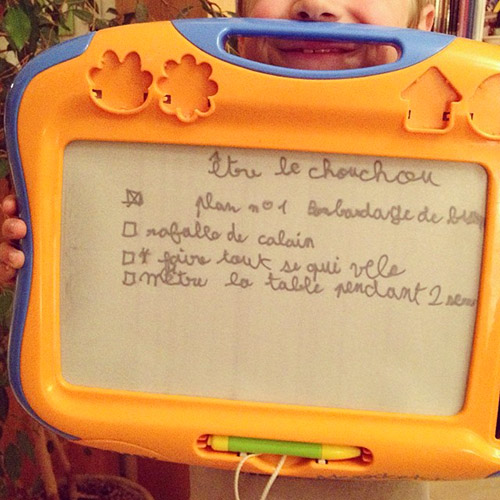 être le chouchou
plan n°1 Bombardage de
rafalle de calain
* faire tout se qui vele
mètre la table pendant 2 sem